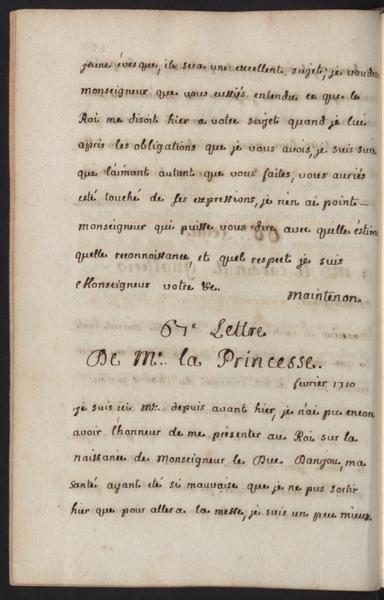 jeune évesque, ils sera un excellent sujet, je voudrois
monseigneur que vous eussiés entendu ce que le
Roi me disoit hier a votre sujet quand je lui
appris les obligations que je vous avois, je suis sure
que l'aimant autant que vous faites, vous auriés
esté touché de ses expressions, je n'en ai point
monseigneur qui puisse vous dire avec quelle estime
quelle reconnoissance, et quel respect je suis
Monseigneur votre &c.
Maintenon.
67e Lettre
De Me. la Princesse.
fevrier 1710
Je suis ici Me. depuis avant hier, je n'ai pu encore
avoir l'honneur de me presenter au Roi sur la
naissance de Monseigneur le Duc Danjou, ma
santé ayant été si mauvaise que je ne pus sortir
hier que pour aller a la messe, je suis un peu mieux